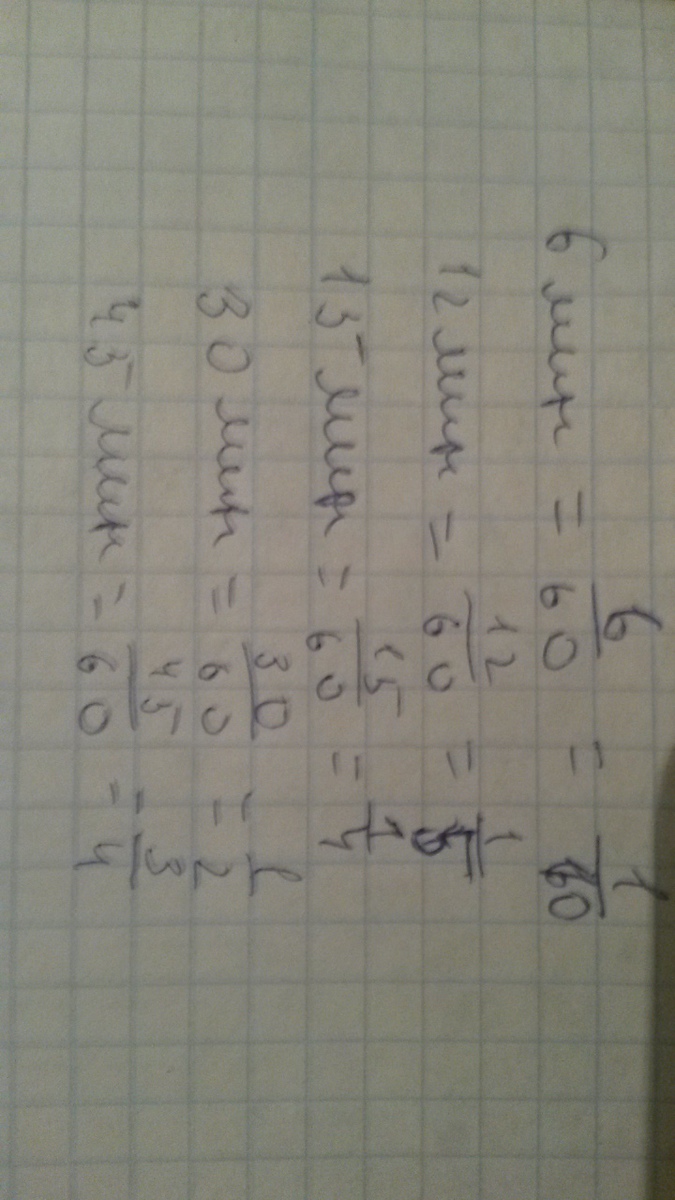 6 мин = 6/60 = 1/10
12 мин = 12/60 = 1/5
15 мин = 15/60 = 1/4
30 мин = 30/60 = 1/2
45 мин = 45/60 = 3/4